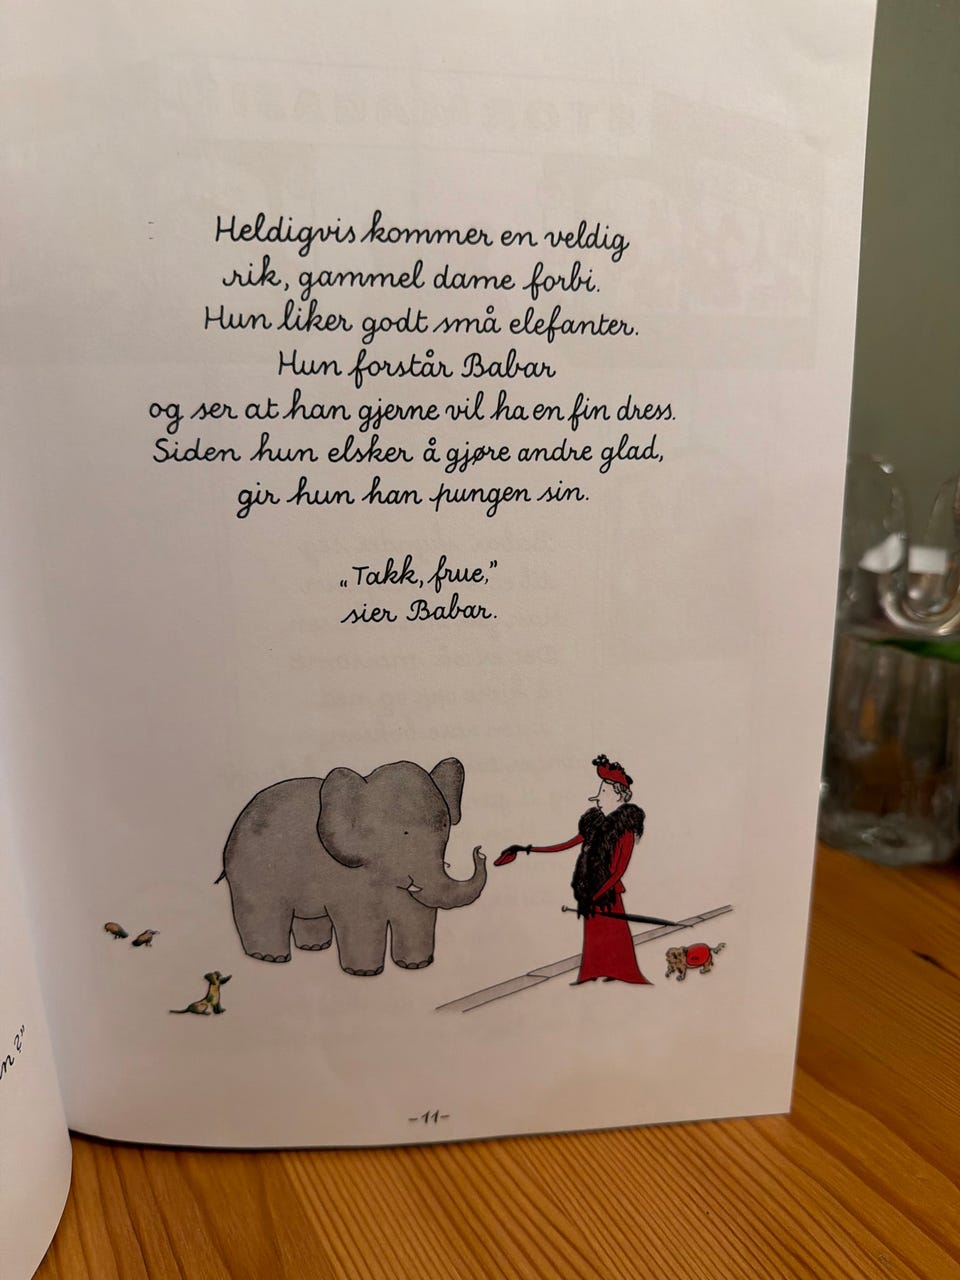 Heldigvis kommer en veldig
rik, gammel dame forbi.
Hun liker godt små elefanter.
Hun forstår Babar
og ser at han gjerne vil ha en fin dress.
Siden hun elsker å gjøre andre glad,
gir hun han pungen sin.
„Takk, frue,”
sier Babar.
-11-